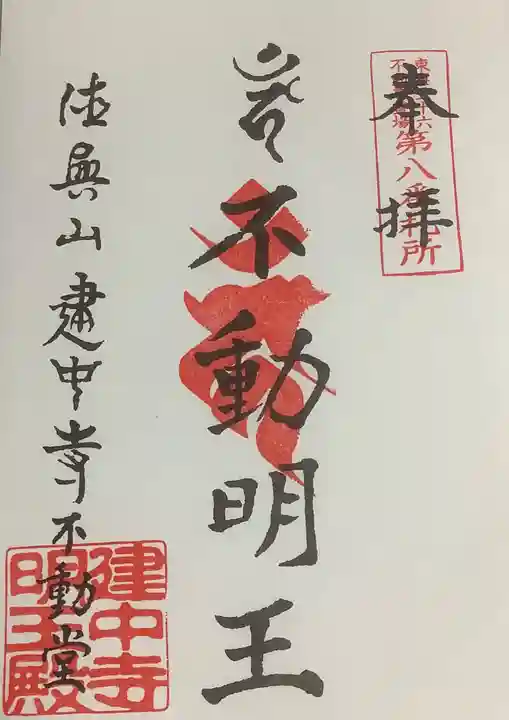 奉拝
東海三十六
不動霊場
第八番札所
不動明王
徳興山建中寺不動堂
建中寺
明王殿